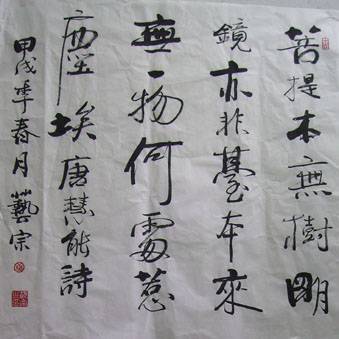 菩提本無樹明
鏡亦非臺本來
無一物何處惹
塵埃唐慧能詩
甲戌年春月藝宗